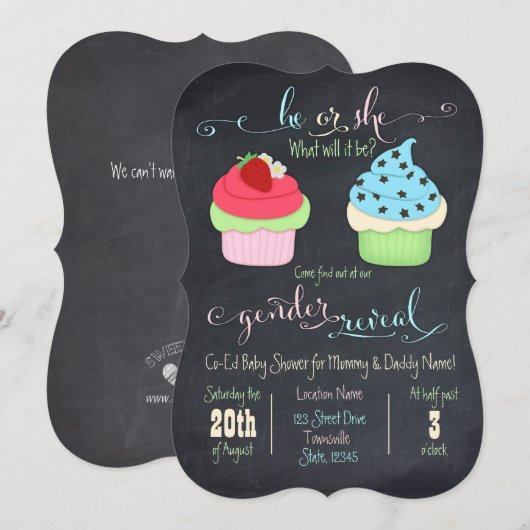 he or she
What will it be?
Come find out at our
gender reveal
Co-Ed Baby Shower for Mommy & Daddy Name!
Saturday the
20th
of August
Location Name
123 Street Drive
Townsville
State, 12345
At half past
3
o'clock
We can't wa
SWEE
www.